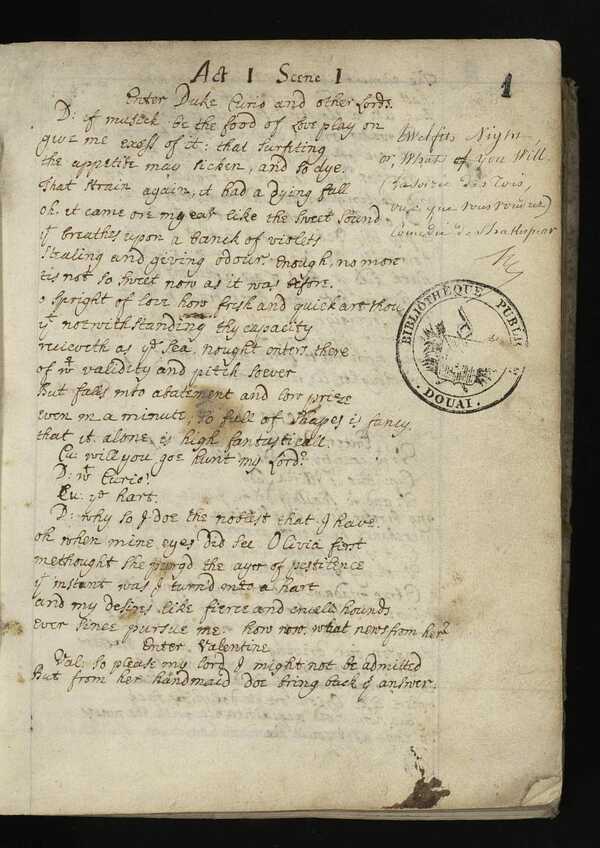 Act I Scene I
1
Enter Duke Curio and other Lords.
D: if musick be the food of Love play on
give me excess of it: that surfiting
the appetite may sicken, and so dye.
That strain again, it had a dying fall
oh, it came ore my ear like the sweet sound
yt breathes upon a banck of violets
stealing and giving odour. enough, no more
tis not so sweet now as it was before.
o spright of love how fresh and quick art thou
yt notwithstanding thy capacity
receiveth as ye sea, nought enters there
of wt validity and pitch soever
But falls into abatement and low prize
even in a minute; so full of shapes is fancy,
that it alone is high fantasticall.
Cu: will you goe hunt my Lord?
D: wt Curio?
Cu: ye hart.
D: why so I doe the noblest that I have.
oh when mine eyes did see Olivia first
methought she purgd the ayer of pestilence
yt instant was I turn'd into a hart
and my desires like fierce and cruell hounds
ever since pursue me. how now, what news from her?
Enter Valentine
Val: so please my lord I might not be admitted
But from her handmaid doe bring back ys answer.
Twelfts Night
or, What of you Will
vous voudrez)
Comedie de Shakespear
BIBLIOTHÈQUE PUBLI
· DOUAI ·